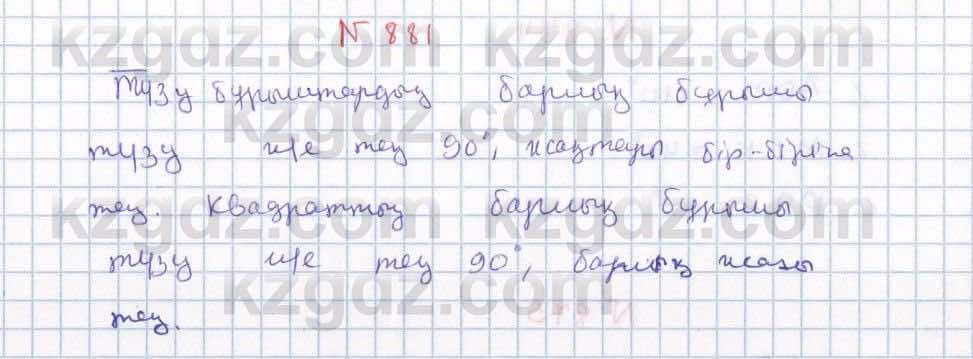 № 881
Түзу бұрыштардың барлық бұрышы
түзу және тең 90°, жақтары бір-біріне
тең. Квадраттың барлық бұрышы
түзу және тең 90°, барлық жағы
тең.
kzgdz.com
kzgdz.com
kzgdz.com
kzgdz.com
kzgdz.com
kzgdz.com